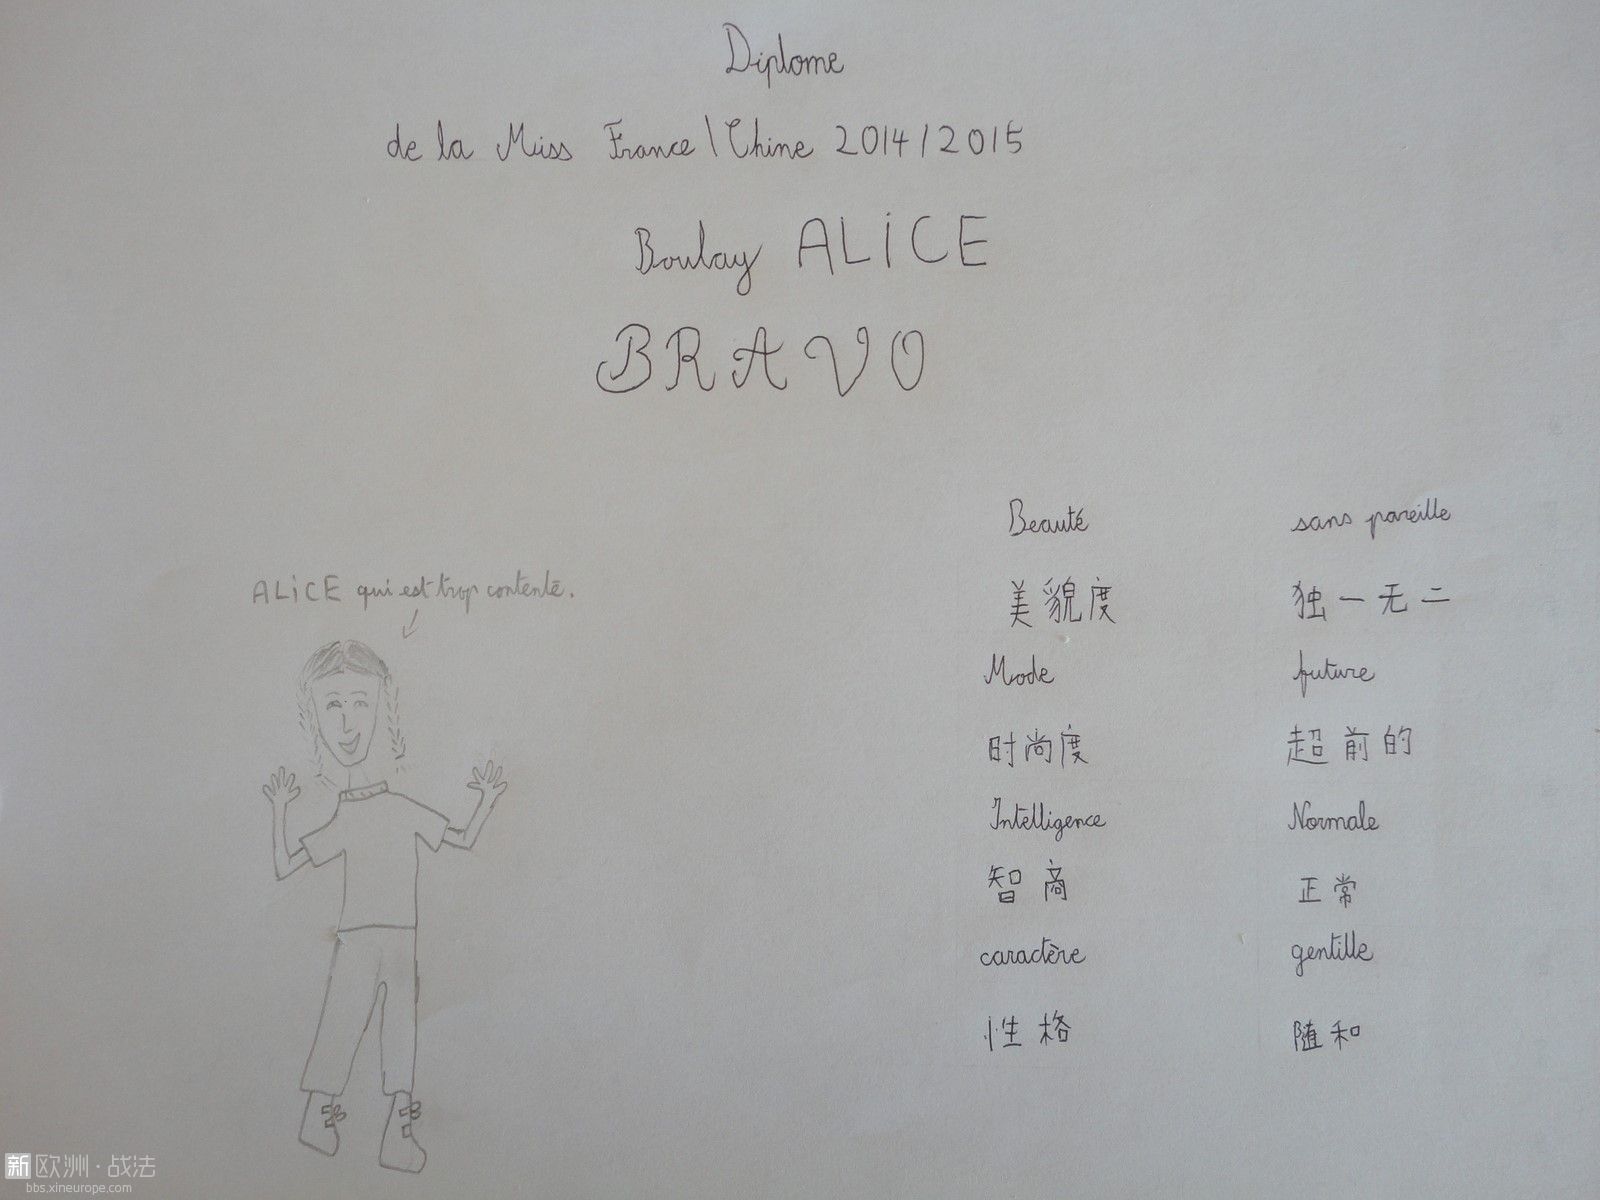 Diplome
de la Miss France \ Chine 2014/2015
Boulay ALiCE
BRAVO
Beauté sans pareille
美貌度 独一无二
ALiCE qui est trop contente.
Mode future
时尚度 超前的
Intelligence Normale
智商 正常
caractère gentille
性格 随和
新欧洲·战法
bbs.xineurope.com